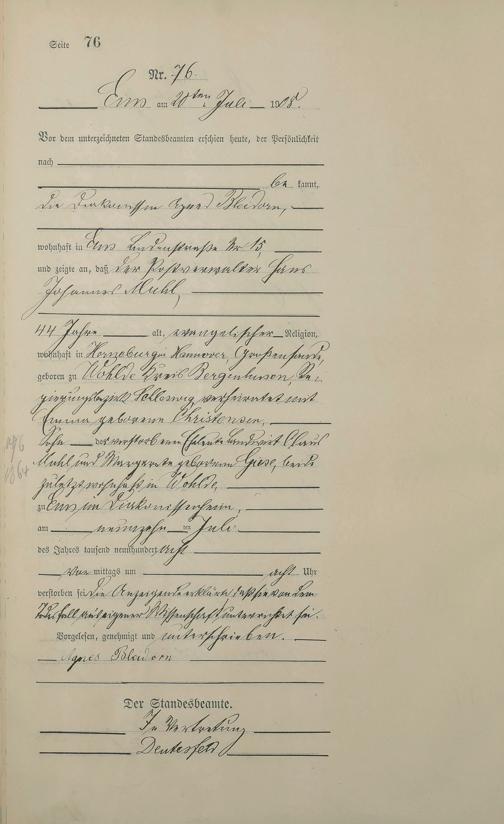 Seite 76
Nr. 76.
Ems am 20ten Juli 1908.
Vor dem unterzeichneten Standesbeamten erschien heute, der Persönlichkeit
nach
be kannt,
die Diakonissin Agnes Bleidorn,
wohnhaft in Ems Lindenstraße Nr 15,
und zeigte an, daß der Postverwalter Hans
Johannes Muhl,
44 Jahre alt, evangelischer Religion,
wohnhaft in Hannover,
geboren zu Wohlde Kreis
Schleswig, verheiratet mit
Emma geborene Christensen,
Sohn der verstorbenen Eheleute Landwirt Claus
Muhl und Margareta geborene Guse, beide
zuletzt wohnhaft in Wohlde,
zu Ems im Diakonissenheim,
am neunzehn ten Juli
des Jahres tausend neunhundert acht
Vor mittags um acht Uhr
verstorben sei. Die Anzeigende erklärte, daß sie von dem
Todesfall aus eigener Wissenschaft unterrichtet sei.
Vorgelesen, genehmigt und unterschrieben.
Agnes Bleidorn
Der Standesbeamte.
In Vertretung